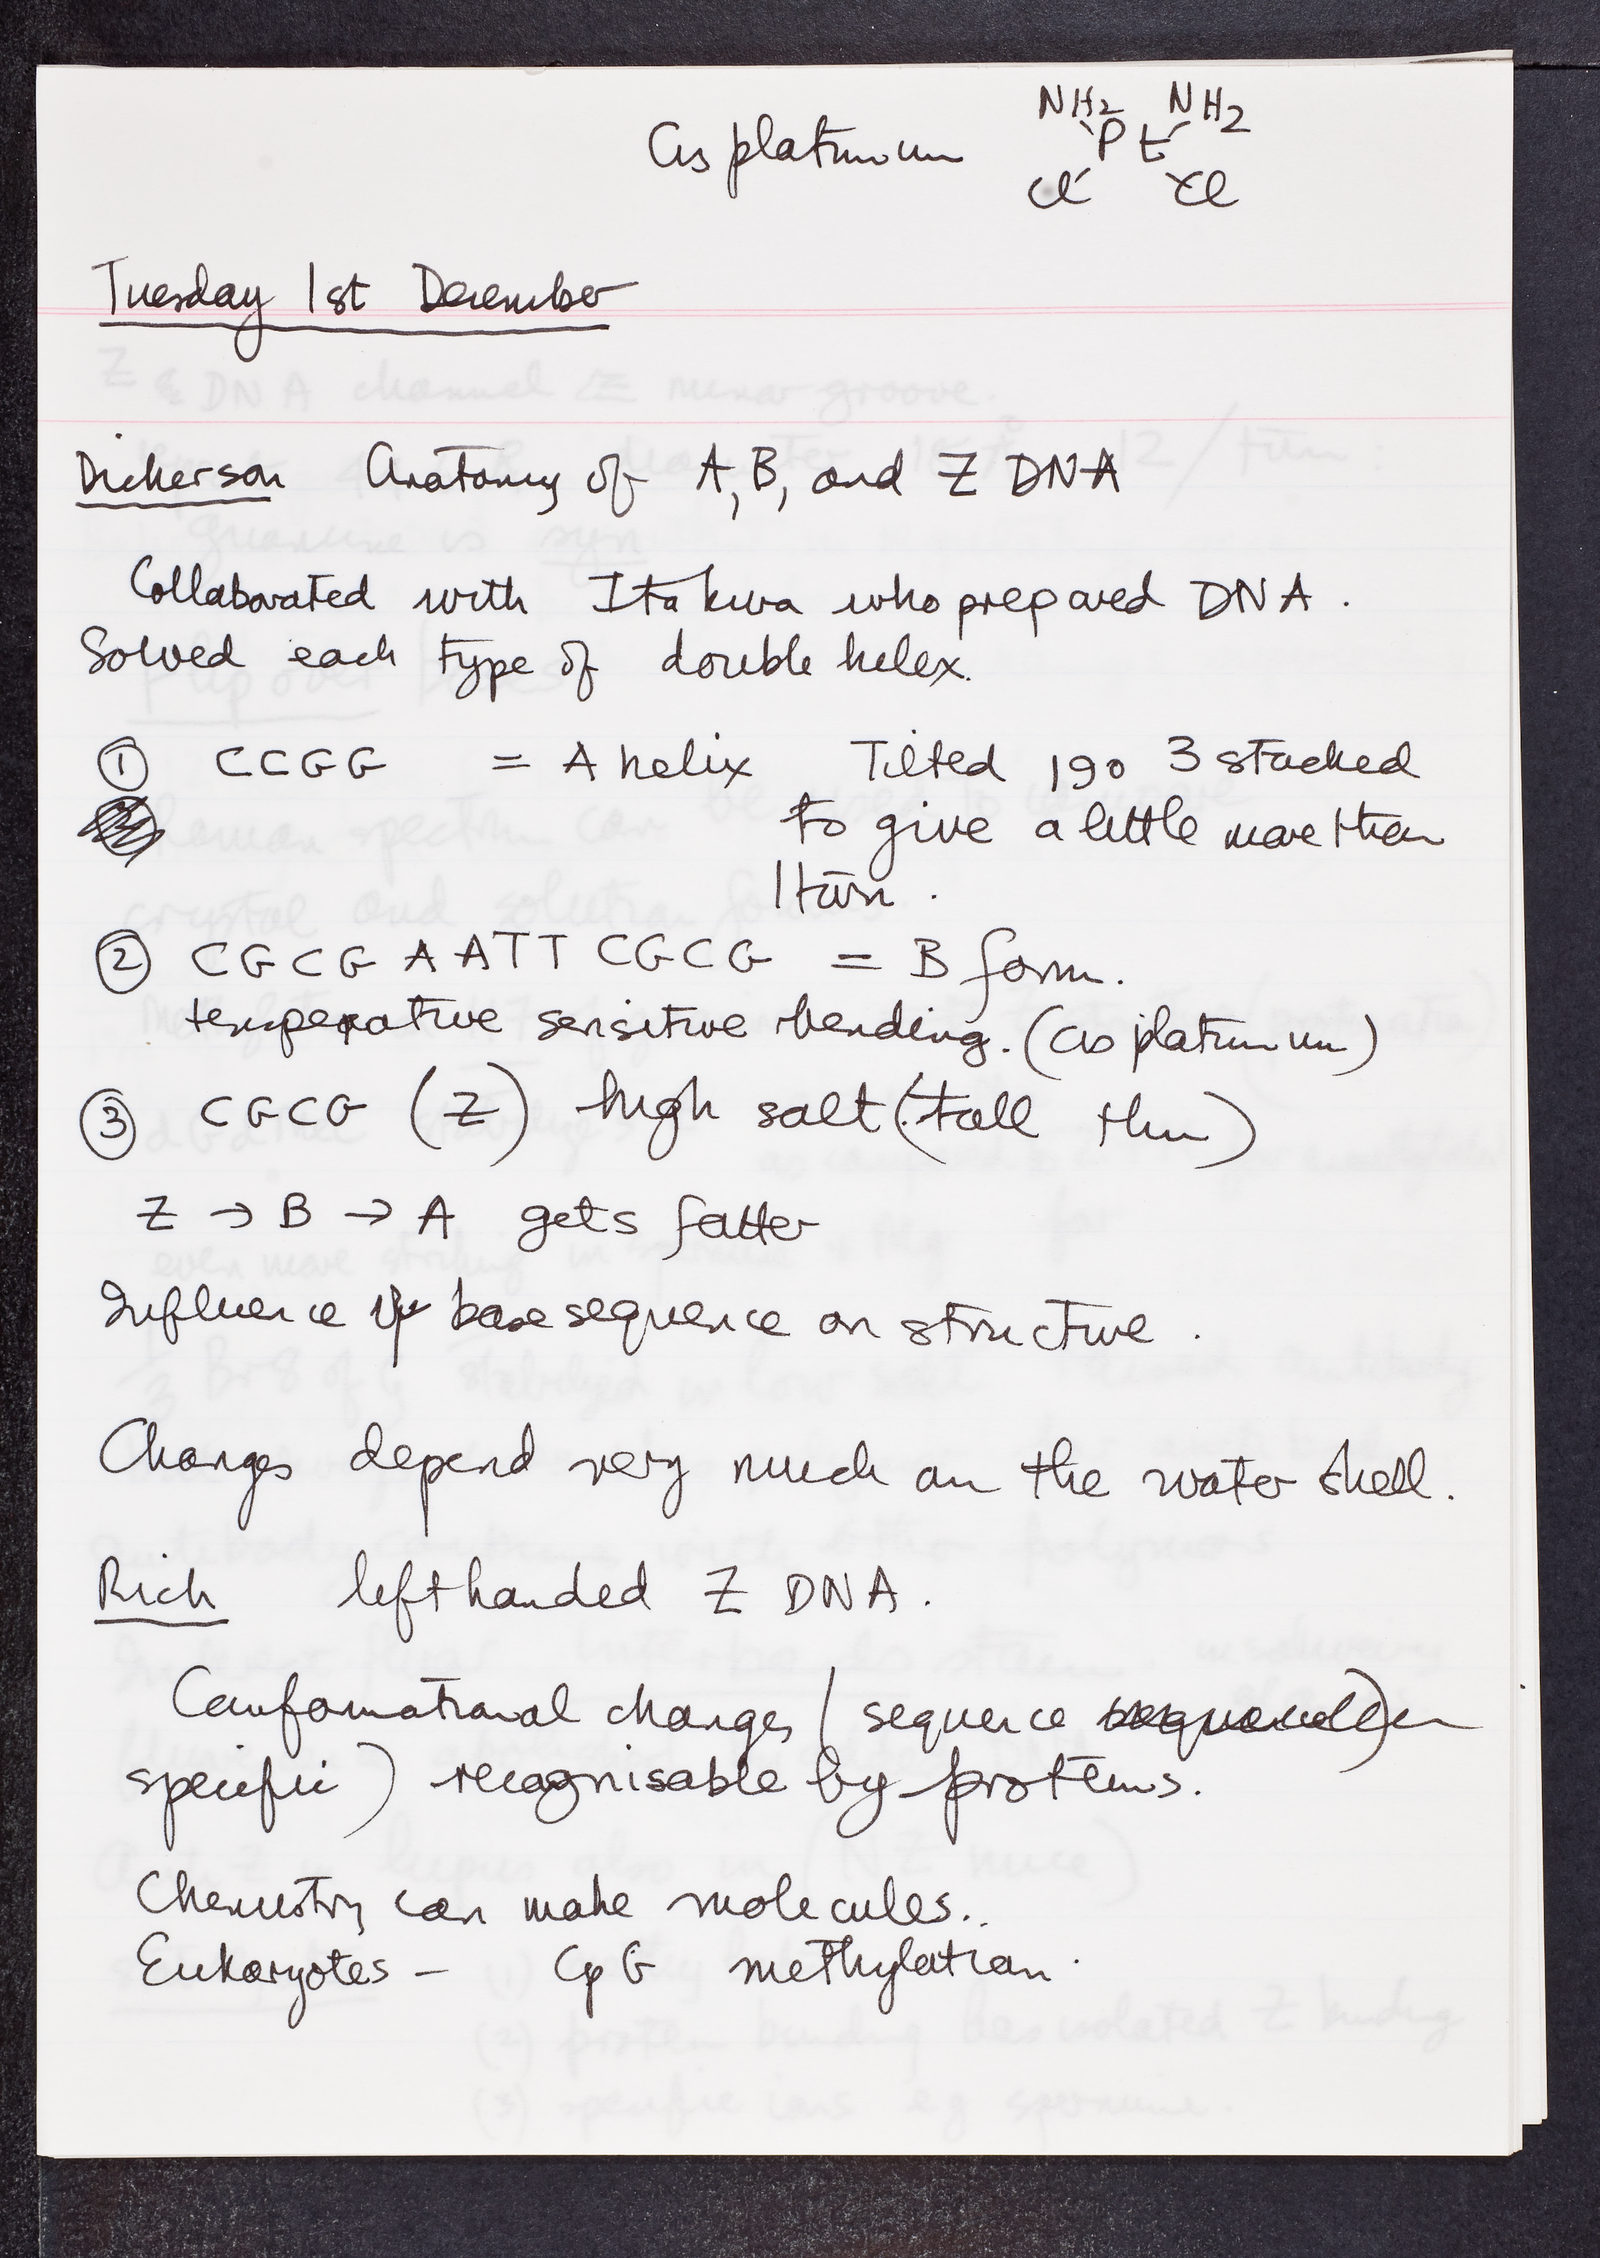 Cis platinum
NH2 NH2
Pt
Cl Cl
Tuesday 1st December
Dickerson Anatomy of A, B, and Z DNA
Collaborated with Itakura who prepared DNA.
Solved each type of double helix.
① CCGG = A helix Tilted 190 3 stacked
to give a little more than
1 turn.
② CGCGAATTCGCG = B form.
temperature sensitive bending. (cis platinum)
③ CGCG (Z) high salt (tall thin)
Z → B → A gets fatter
Influence of base sequence on structure.
Changes depend very much on the water shell.
Rich left handed Z DNA.
Conformational changes (sequence
specific) recognisable by proteins.
Chemistry can make molecules..
Eukaryotes - CpG methylation.